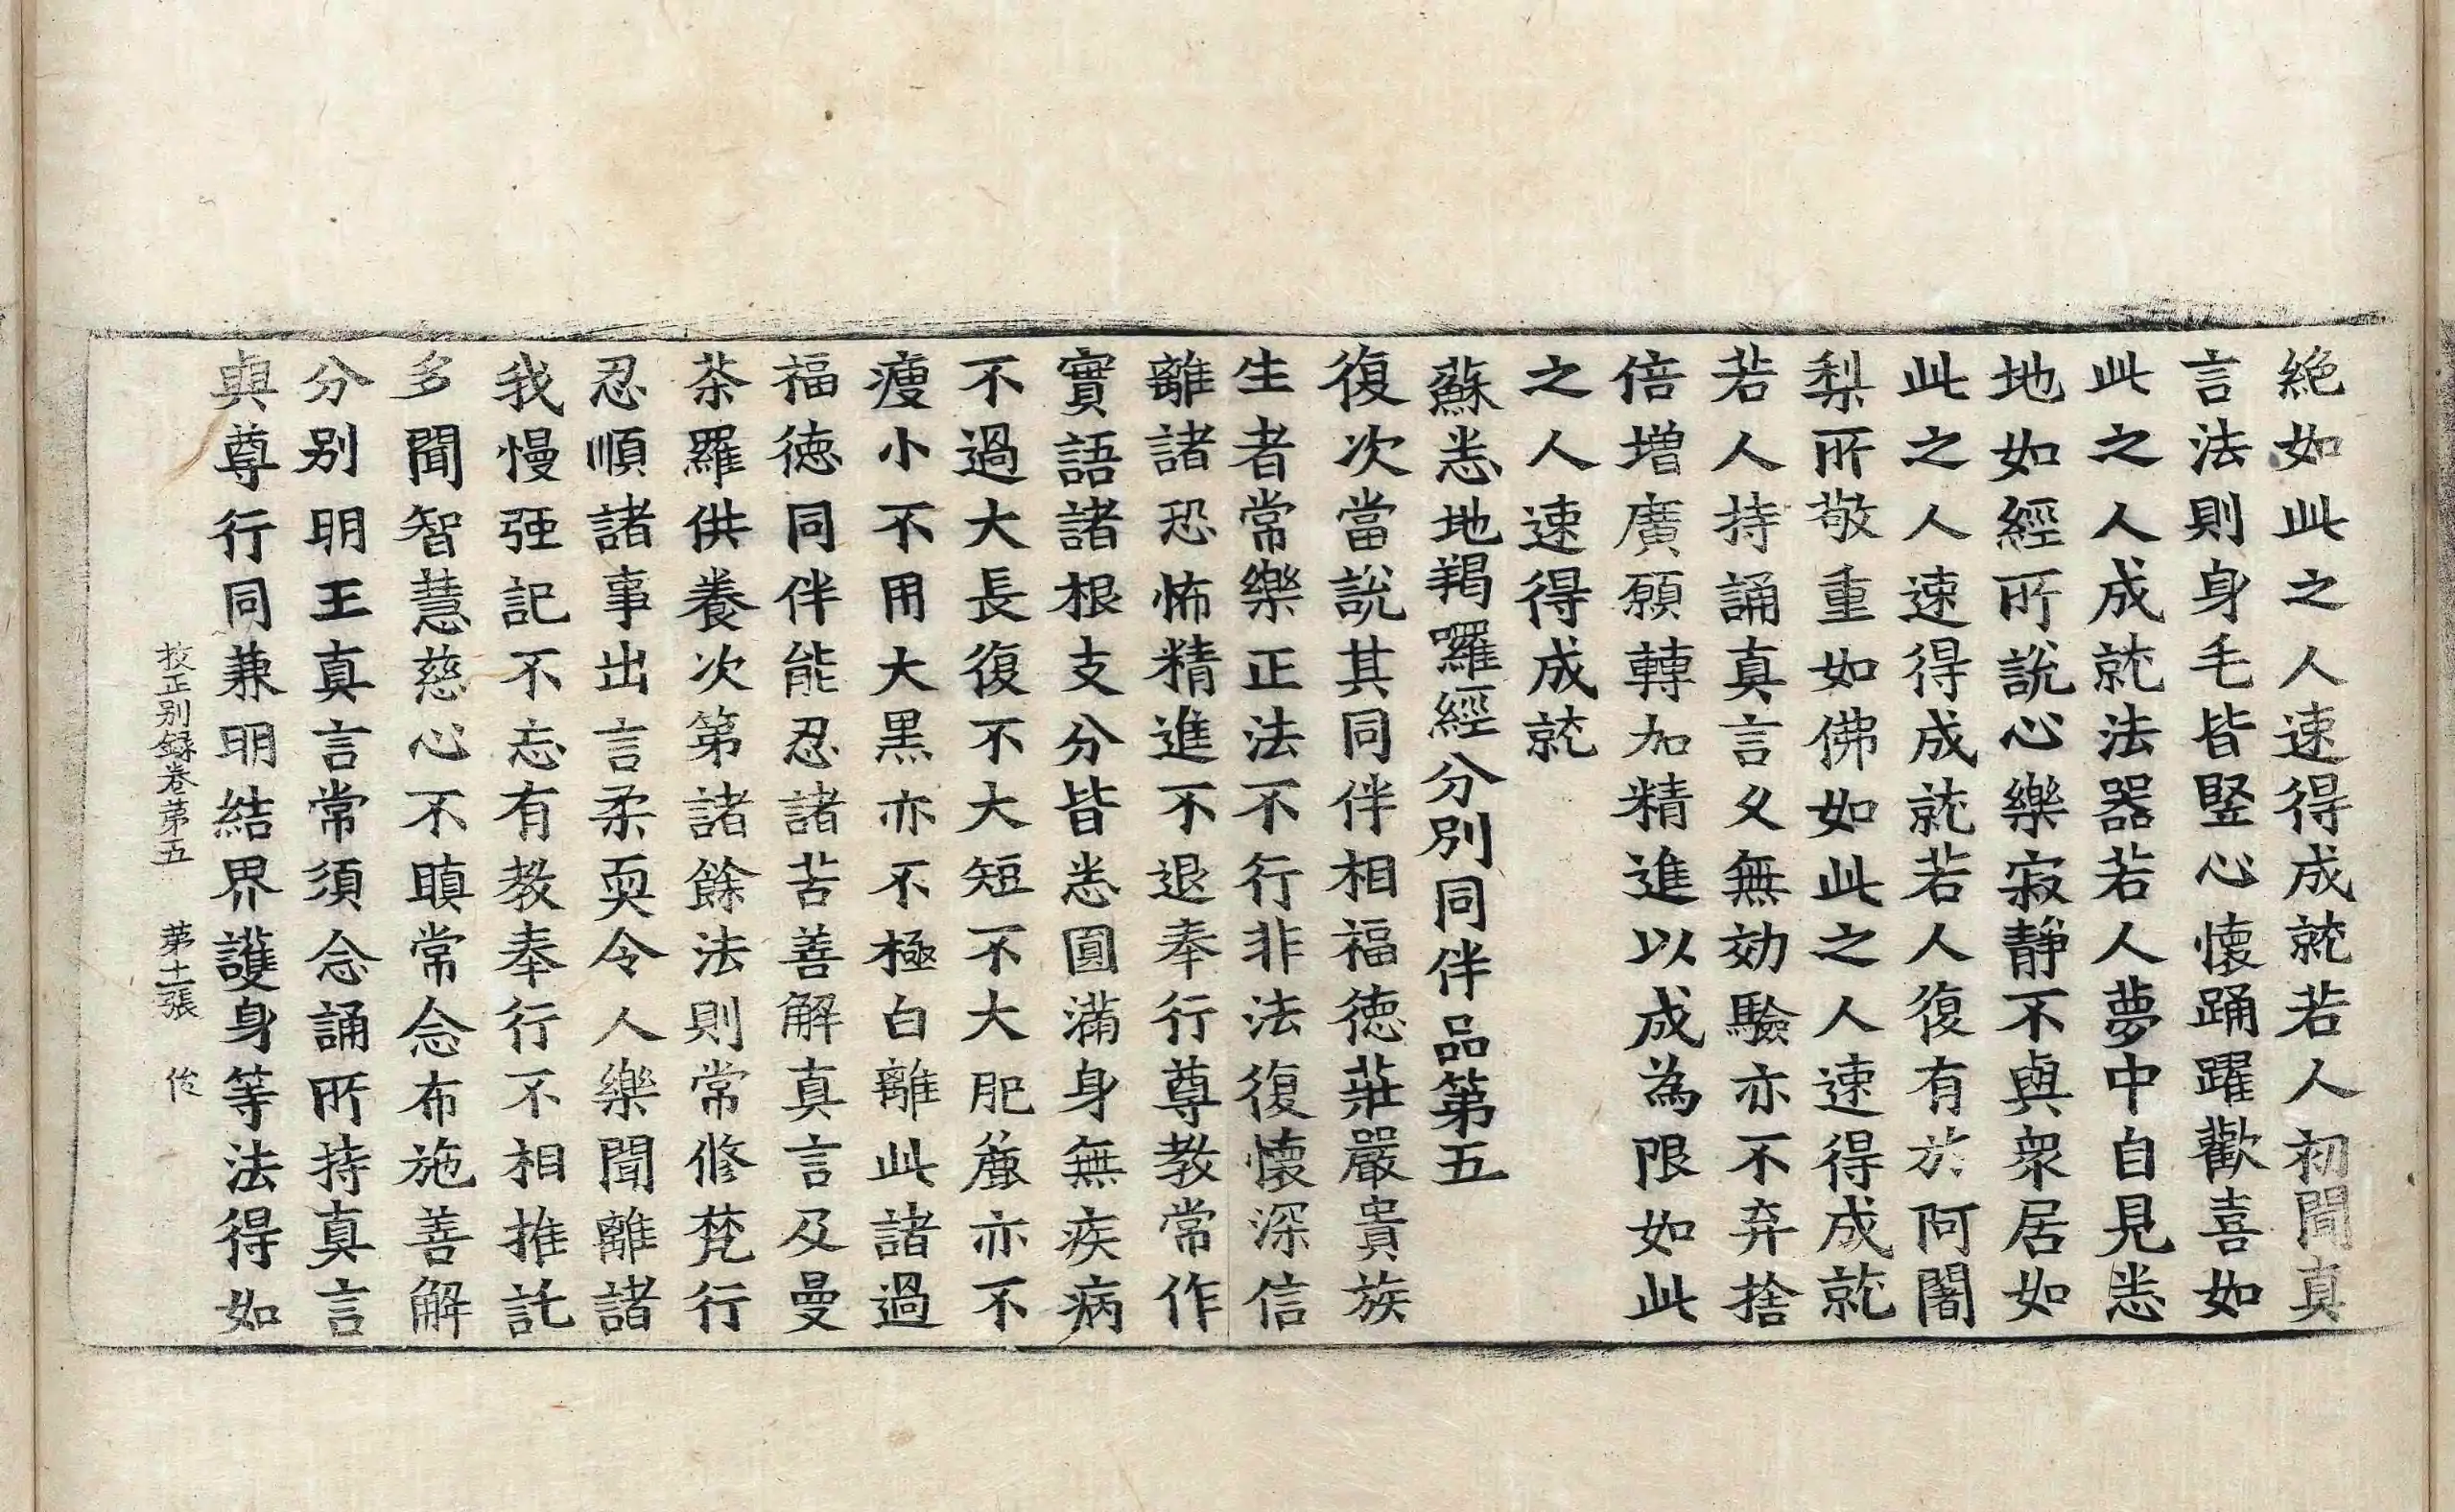 絶如此之人速得成就若人初聞真
言法則身毛皆竪心懷踊躍歡喜如
此之人成就法器若人夢中自見悉
地如經所說心樂寂靜不與衆居如
此之人速得成就若人復有於阿闍
梨所敬重如佛如此之人速得成就
若人持誦真言久無効驗亦不弃捨
倍增廣願轉加精進以成為限如此
之人速得成就
蘇悉地羯囉經分別同伴品第五
復次當說其同伴相福德莊嚴貴族
生者常樂正法不行非法復懷深信
離諸恐怖精進不退奉行尊教常作
實語諸根支分皆悉圓滿身無疾病
不過大長復不大短不大肥麁亦不
瘦小不用大黑亦不極白離此諸過
福德同伴能忍諸苦善解真言及曼
茶羅供養次第諸餘法則常修梵行
忍順諸事出言柔耎令人樂聞離諸
我慢强記不忘有教奉行不相推託
多聞智慧慈心不瞋常念布施善解
分别明王真言常須念誦所持真言
與尊行同兼明結界護身等法得如
挍正别録卷第五　第十二張　俊